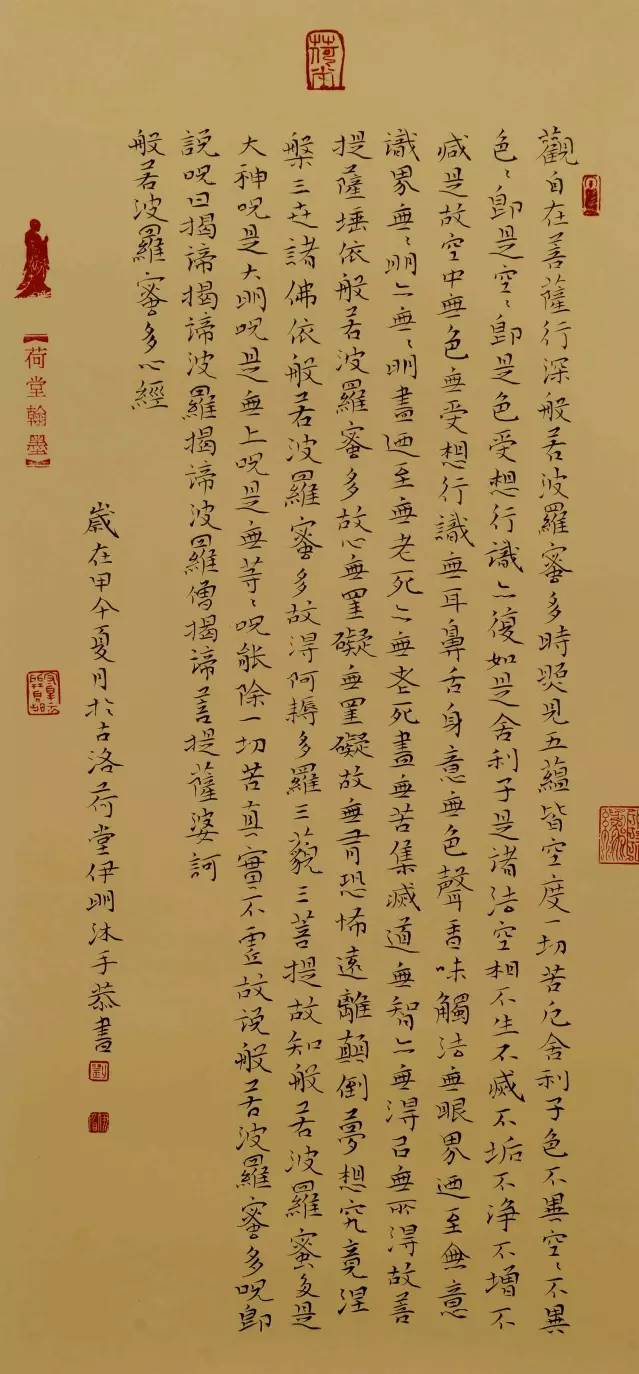 荷堂
觀自在菩薩行深般若波羅蜜多時照見五蘊皆空度一切苦厄舍利子色不異空〻不異
色〻即是空〻即是色受想行識亦復如是舍利子是諸法空相不生不滅不垢不淨不增不
減是故空中無色無受想行識無耳鼻舌身意無色聲香味觸法無眼界迺至無意
識界無〻明亦無〻明盡迺至無老死亦無老死盡無苦集滅道無智亦無得以無所得故菩
提薩埵依般若波羅蜜多故心無罣礙無罣礙故無有恐怖遠離顛倒夢想究竟涅
槃三世諸佛依般若波羅蜜多故得阿耨多羅三藐三菩提故知般若波羅蜜多是
大神呪是大明呪是無上呪是無等〻呪能除一切苦真實不虛故說般若波羅蜜多呪即
說呪曰揭諦揭諦波羅揭諦波羅僧揭諦菩提薩婆訶
般若波羅蜜多心經
歲在甲午夏月於古洛荷堂伊明沐手恭書
劉
【荷堂翰墨】